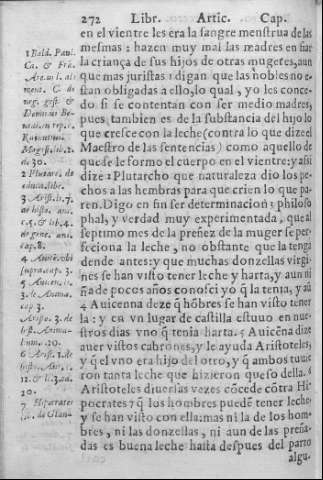 272 Libr. Artic. Cap.
en el vientre les era la sangre menstrua de las
mesmas: hazen muy mal las madres en fiar
la criança de sus hijos de otras mugeres, aun
que mas juristas 1 digan que las nobles no e-
stan obligadas a ello, lo qual, yo les conce-
do si se contentan con ser medio madres,
pues tambien es de la substancia del hijo lo
que cresce con la leche (contra lo que dize el
Maestro de las sentencias) como aquello de
que se le formo el cuerpo en el vientre: y assi
dize 2 Plutarcho que naturaleza dio los pe-
chos a las hembras para que crien lo que pa-
ren. Digo en fin ser determinacion 3 philoso
phal, y verdad muy experimentada, que al
septimo mes de la preñez de la muger se per-
fectiona la leche, no obstante que la tenga
dende antes: y que muchas donzellas virgi-
nes se han visto tener leche y harta, y aun ni
ña de pocos años conosci yo q̃ la tenia, y aũ
4 Auicenna dize q̃ hõbres se han visto tener
la: y en vn lugar de castilla estuuo en nue-
stros dias vno q̃ tenia harta. 5 Auicẽna dize
auer vistos cabrones, y le ayuda Aristoteles,
y q̃ el vno era hijo del otro, y q̃ ambos tuuie
ron tanta leche que hizieron queso della. 6
Aristoteles diuersas vezes cõcede cõtra Hi
pocrates 7 q̃ los hombres puedẽ tener leche,
y se han visto con ella: mas ni la de los hom-
bres, ni las donzellas, ni aun de las preña-
das es buena leche hasta despues del parto
algu-
1 Bald. Paul.
Ca. & Frã.
Are. in l. ali-
menta. C. de
neg. gest. &
2 Plutarc. de
educa. libe.
3 Arist. li. 7.
de histo. ani.
de gene. ani.
cap. 8.
4 Auicẽ. vbi
supra. cap. 3.
5 Auicen. li.
3. de Anima.
cap. 3.
Aristo. 3. de
hist. Anima-
lium. 20.
6 Arist. 1. de
20.
7 Hipocrates